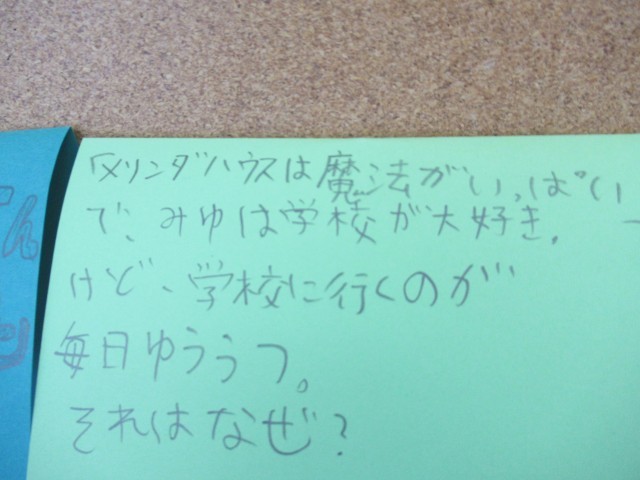 「メリンダハウスは魔法がいっぱい」
で、みゆは学校が大好き。
けど、学校に行くのが
毎日ゆううつ。
それはなぜ?